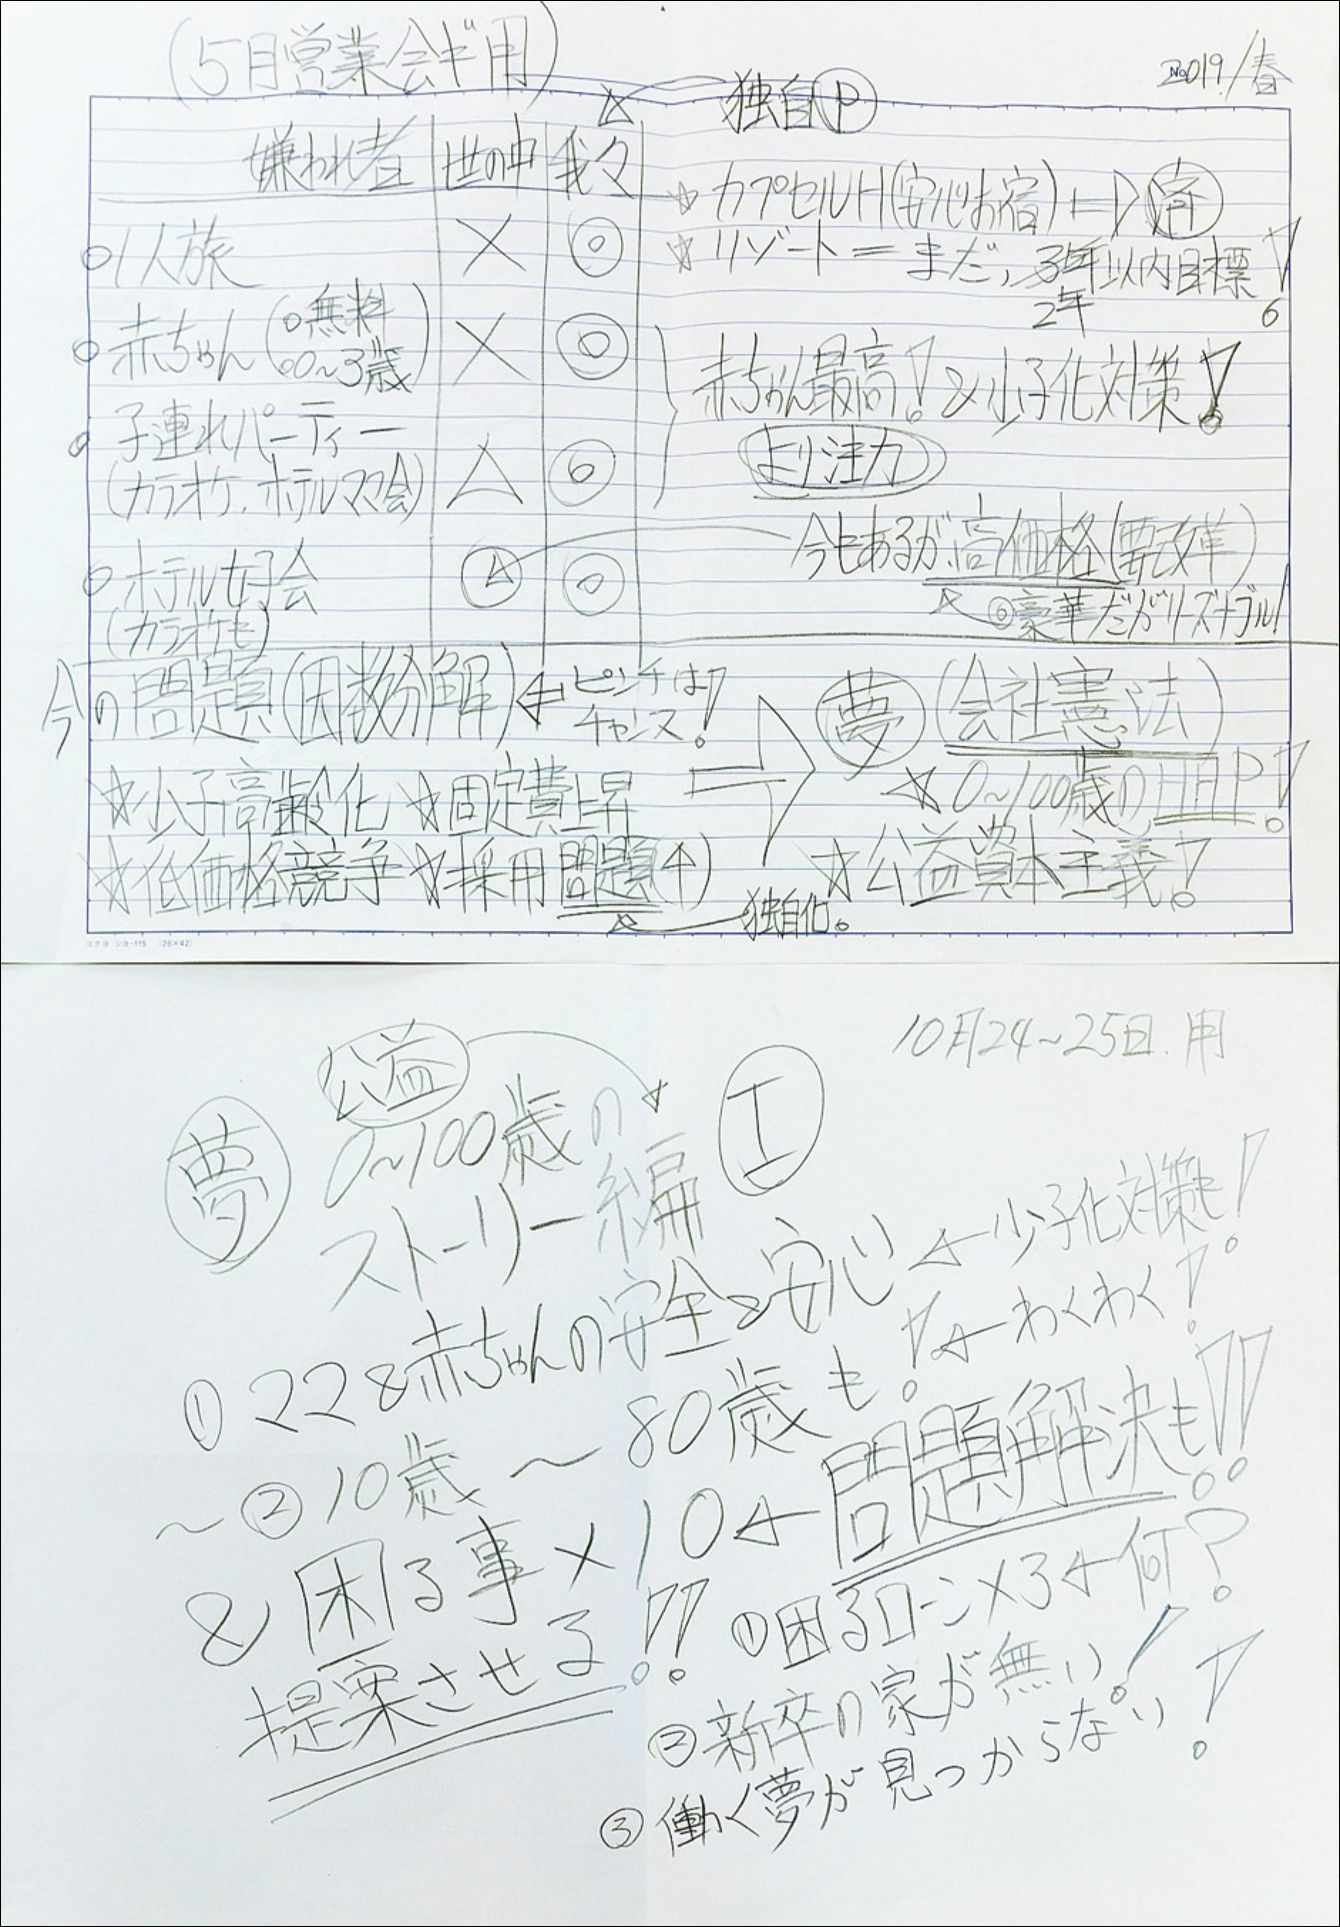 (5月営業会ギ用)
2019/春
独自P
嫌われ者 世の中 我々
1人旅 × ◎
☆カプセルH(安心お宿)
☆リゾート=まだ、3年以内目標!
2年
赤ちゃん(○無料 × ◎
○0~3歳)
赤ちゃん最高!&少子化対策!
より注力
子連れパーティー △ ◎
(カラオケ、ホテルママ会)
今もあるが、高価格(要改革)
◎豪華だがリーズナブル!
ホテル女子会 △ ◎
(カラオケも)
今の問題(因数分解)
ピンチは
チャンス!
夢(会社憲法)
☆少子高齢化 ☆固定費上昇
☆0~100歳のHAP!
☆低価格競争 ☆採用問題(↑)
☆公益資本主義!
独自化。
コクヨ シヨ-115 (26×42)
10月24~25日.用
公益
夢 0~100歳の
ストーリー編 I
①ママ&赤ちゃんの安全&安心←少子化対策も!
~②10歳~80歳も!←わくわく!
&困る事×10←問題解決も!!
提案させる!!
①困るローン×3←何?
②新卒の家が無い!
③働く夢が見つからない!